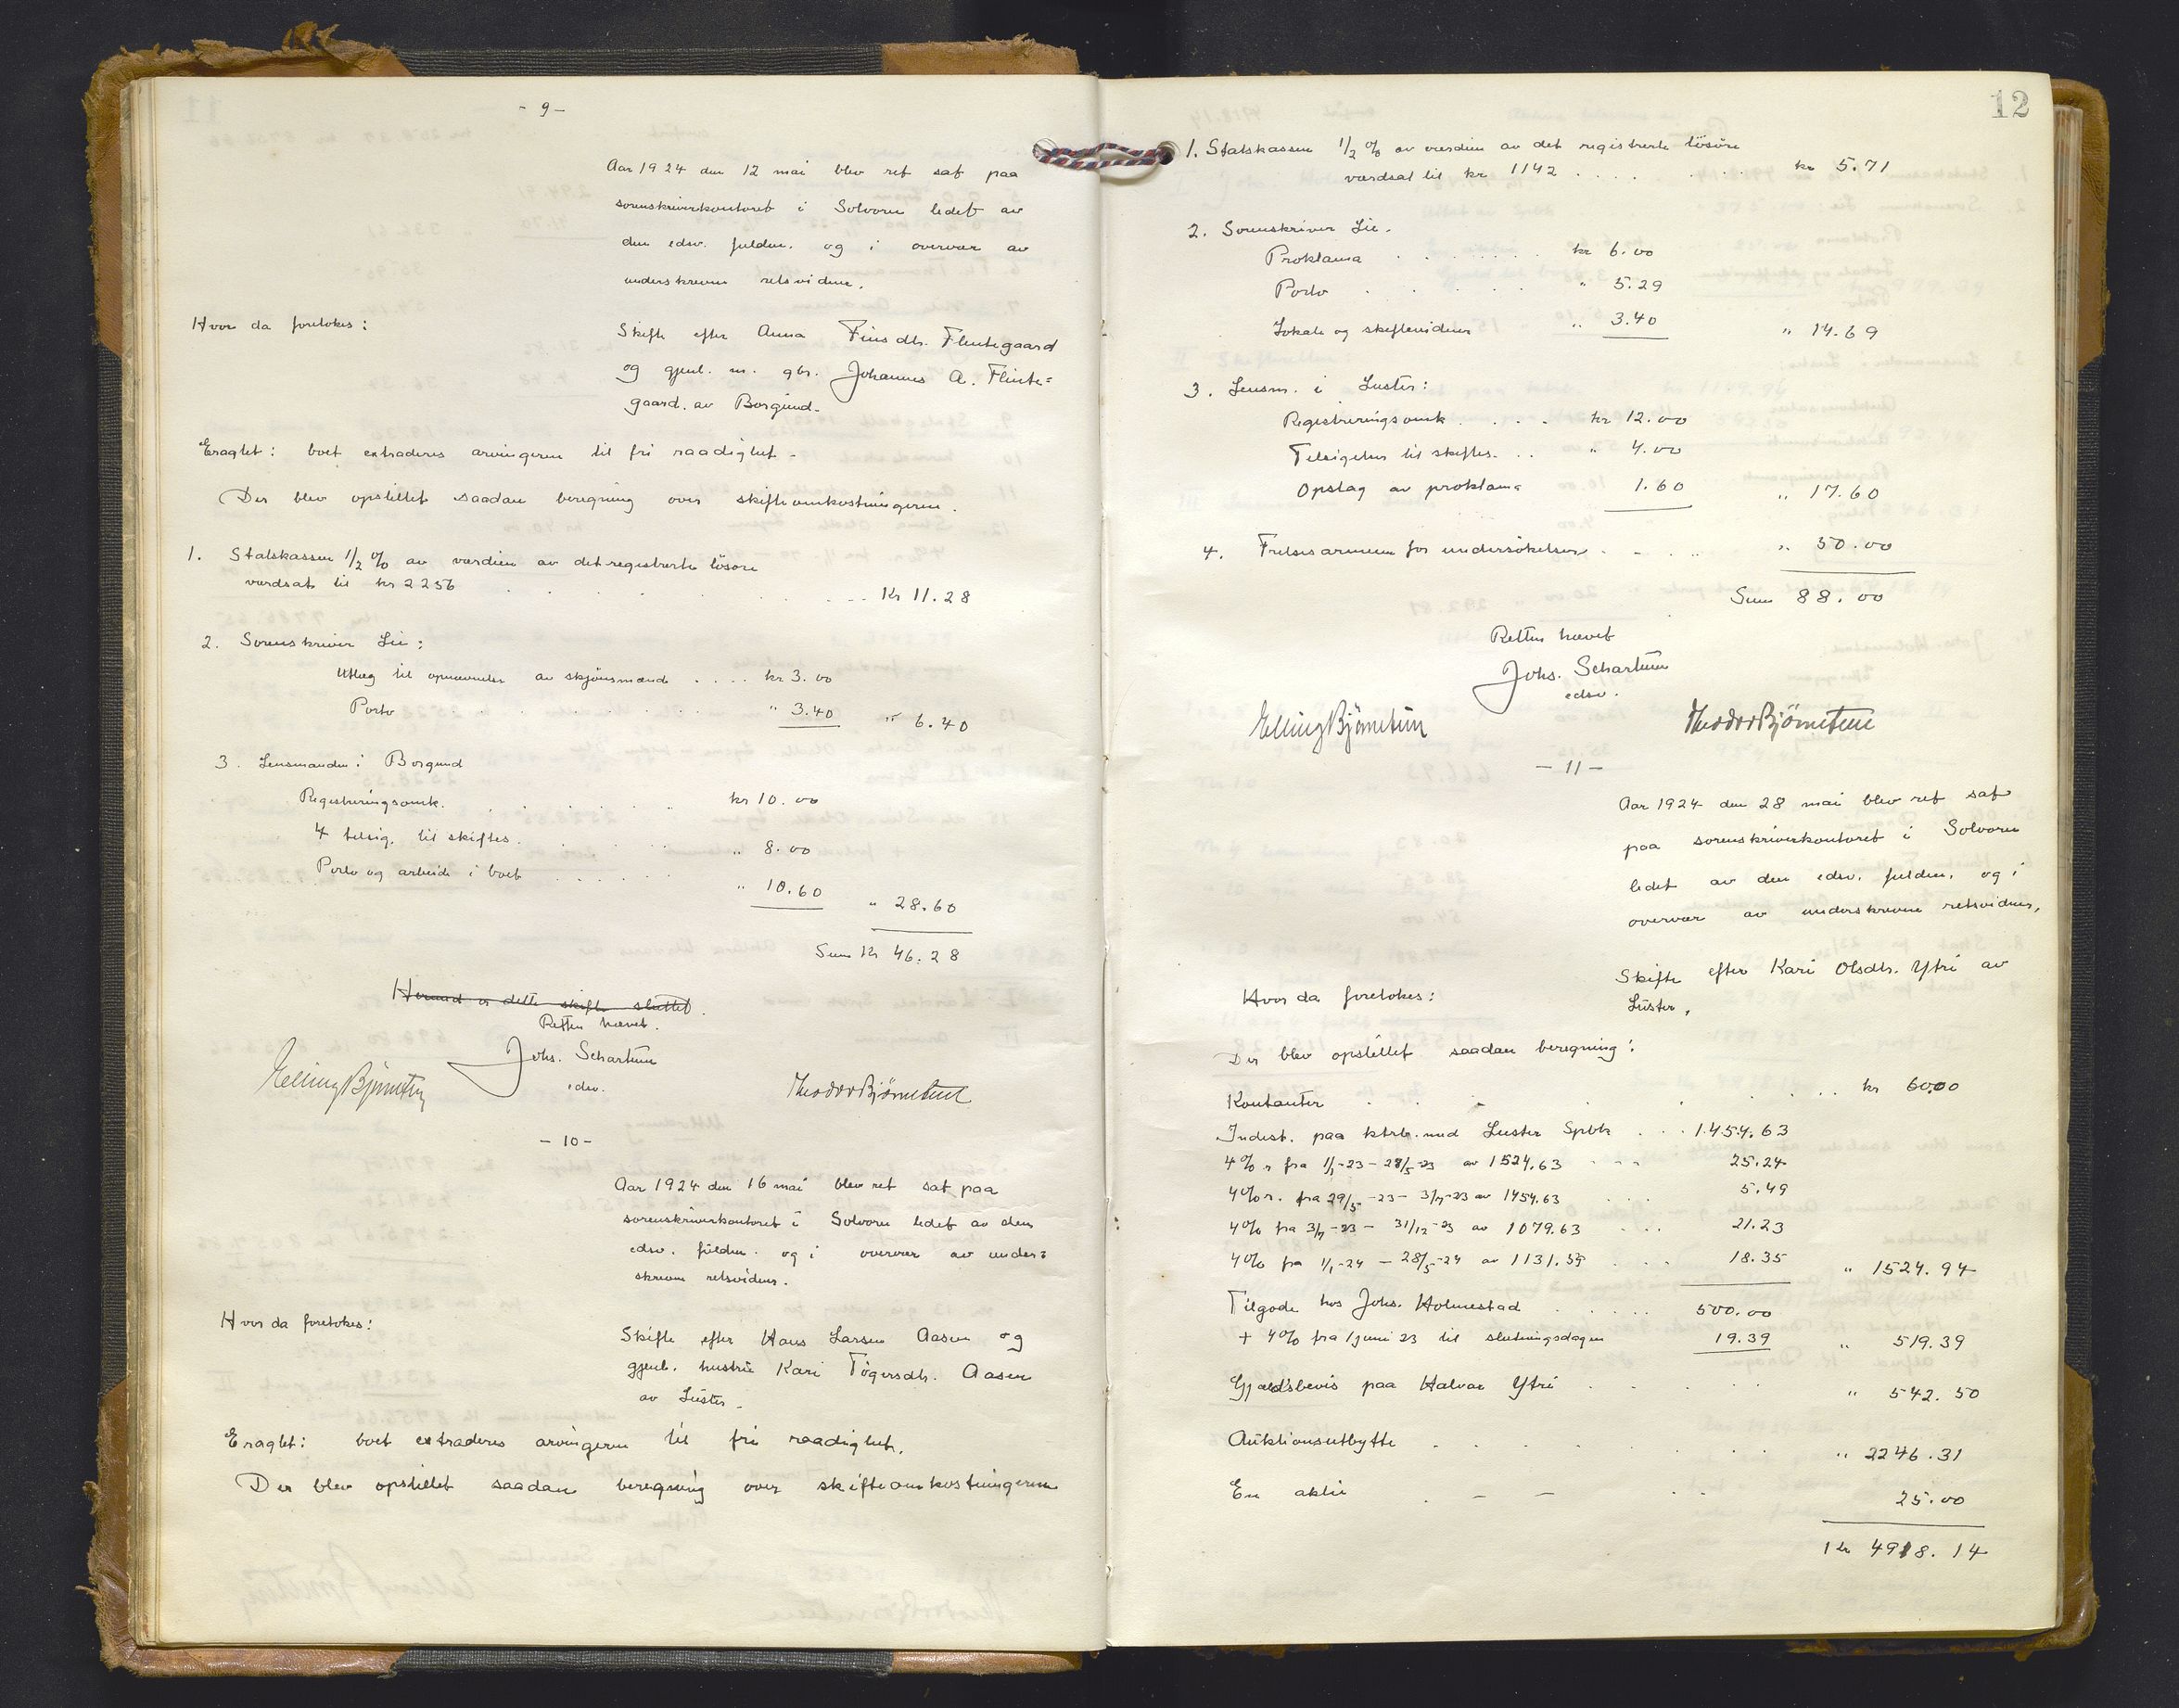 - 9 -
Aar 1924 den 12 mai blev ret sat paa
sorenskriverkontoret i Solvorn ledet av
den edsv. fuldm. og i overvær av
underskrevne retsvidner.
Hvor da foretokes:
Skifte efter Anna Finsdtr. Flentegaard
og gjenl. m. gbr. Johannes A. Flinte=
gaard. av Borgund.
Eragtet: boet extraderes arvingerne til fri raadighet.
Der blev opstillet saadan beregning over skifteomkostningerne.
1. Statskassen 1/2 % av værdien av det registrerte løsøre
værdsat til kr 2256 . . . Kr 11.28
2. Sorenskriver Lie:
Utlæg til opnævnelse av skjønsmænd . . . . kr 3.00
Porto . . . " 3.40 " 6.40
3. Lensmanden i Borgund
Registreringsomk. . . . kr 10.00
4 tilsig. til skiftes. . . . " 8.00
Porto og arbeide i boet . . . " 10.60 " 28.60
Sum Kr 46.28
Hermed er dette skifte sluttet.
Retten hævet.
Johs. Schartum
edsv.
Elling Bjørnetun
Theodor Bjørnetun
- 10 -
Aar 1924 den 16 mai blev ret sat paa
sorenskriverkontoret i Solvorn ledet av den
edsv. fuldm. og i overvær av under=
skrevne retsvidner.
Hvor da foretokes:
Skifte efter Hans Larsen Aasen og
gjenl. hustru Kari Tøgersdtr. Aasen
av Luster.
Eragtet: boet extraderes arvingerne til fri raadighet.
Der blev opstillet saadan beregning over skifteomkostningerne
12
1. Statskassen 1/2 % av værdien av det registrerte løsøre
værdsat til kr 1142 . . . . kr 5.71
2. Sorenskriver Lie.
Proklama . . . kr 6.00
Porto . . . " 5.29
Lokale og skiftevidner " 3.40 " 14.69
3. Lensm. i Luster:
Registreringsomk . . . . kr 12.00
Tilsigelser til skiftes. . . " 4.00
Opslag av proklama 1.60 " 17.60
4. Frelsesarmeen for undersøkelser . . . " 50.00
Sum 88.00
Retten hævet
Johs. Schartum
edsv.
Elling Bjørnetun
Theodor Bjørnetun
- 11 -
Aar 1924 den 28 mai blev ret sat
paa sorenskriverkontoret i Solvorn
ledet av den edsv. fuldm. og i
overvær av underskrevne retsvidner,
Hvor da foretokes:
Skifte efter Kari Olsdtr. Ytri av
Luster.
Der blev opstillet saadan beregning:
Kontanter . . . kr 60.00
Indest. paa ktrb. med Luster Spbk . . . 1454.63
4% r fra 1/1-23 - 28/5-23 av 1524.63 . . . 25.24
4% r. fra 29/5-23 - 3/7-23 av 1454.63 . . . 5.49
4% fra 3/7-23 - 31/12-23 av 1079.63 . . . 21.23
4% fra 1/1-24 - 28/5-24 av 1131.59 . . . 18.35 " 1524.94
Tilgode hos Johs. Holmestad . . . 500.00
+ 4% fra 1 juni 23 til slutningsdagen 19.39 " 519.39
Gjældsbevis paa Halvar Ytri . . . " 542.50
Auktionsutbytte . . . " 2246.31
En aktie . . . 25.00
Kr 4918.14